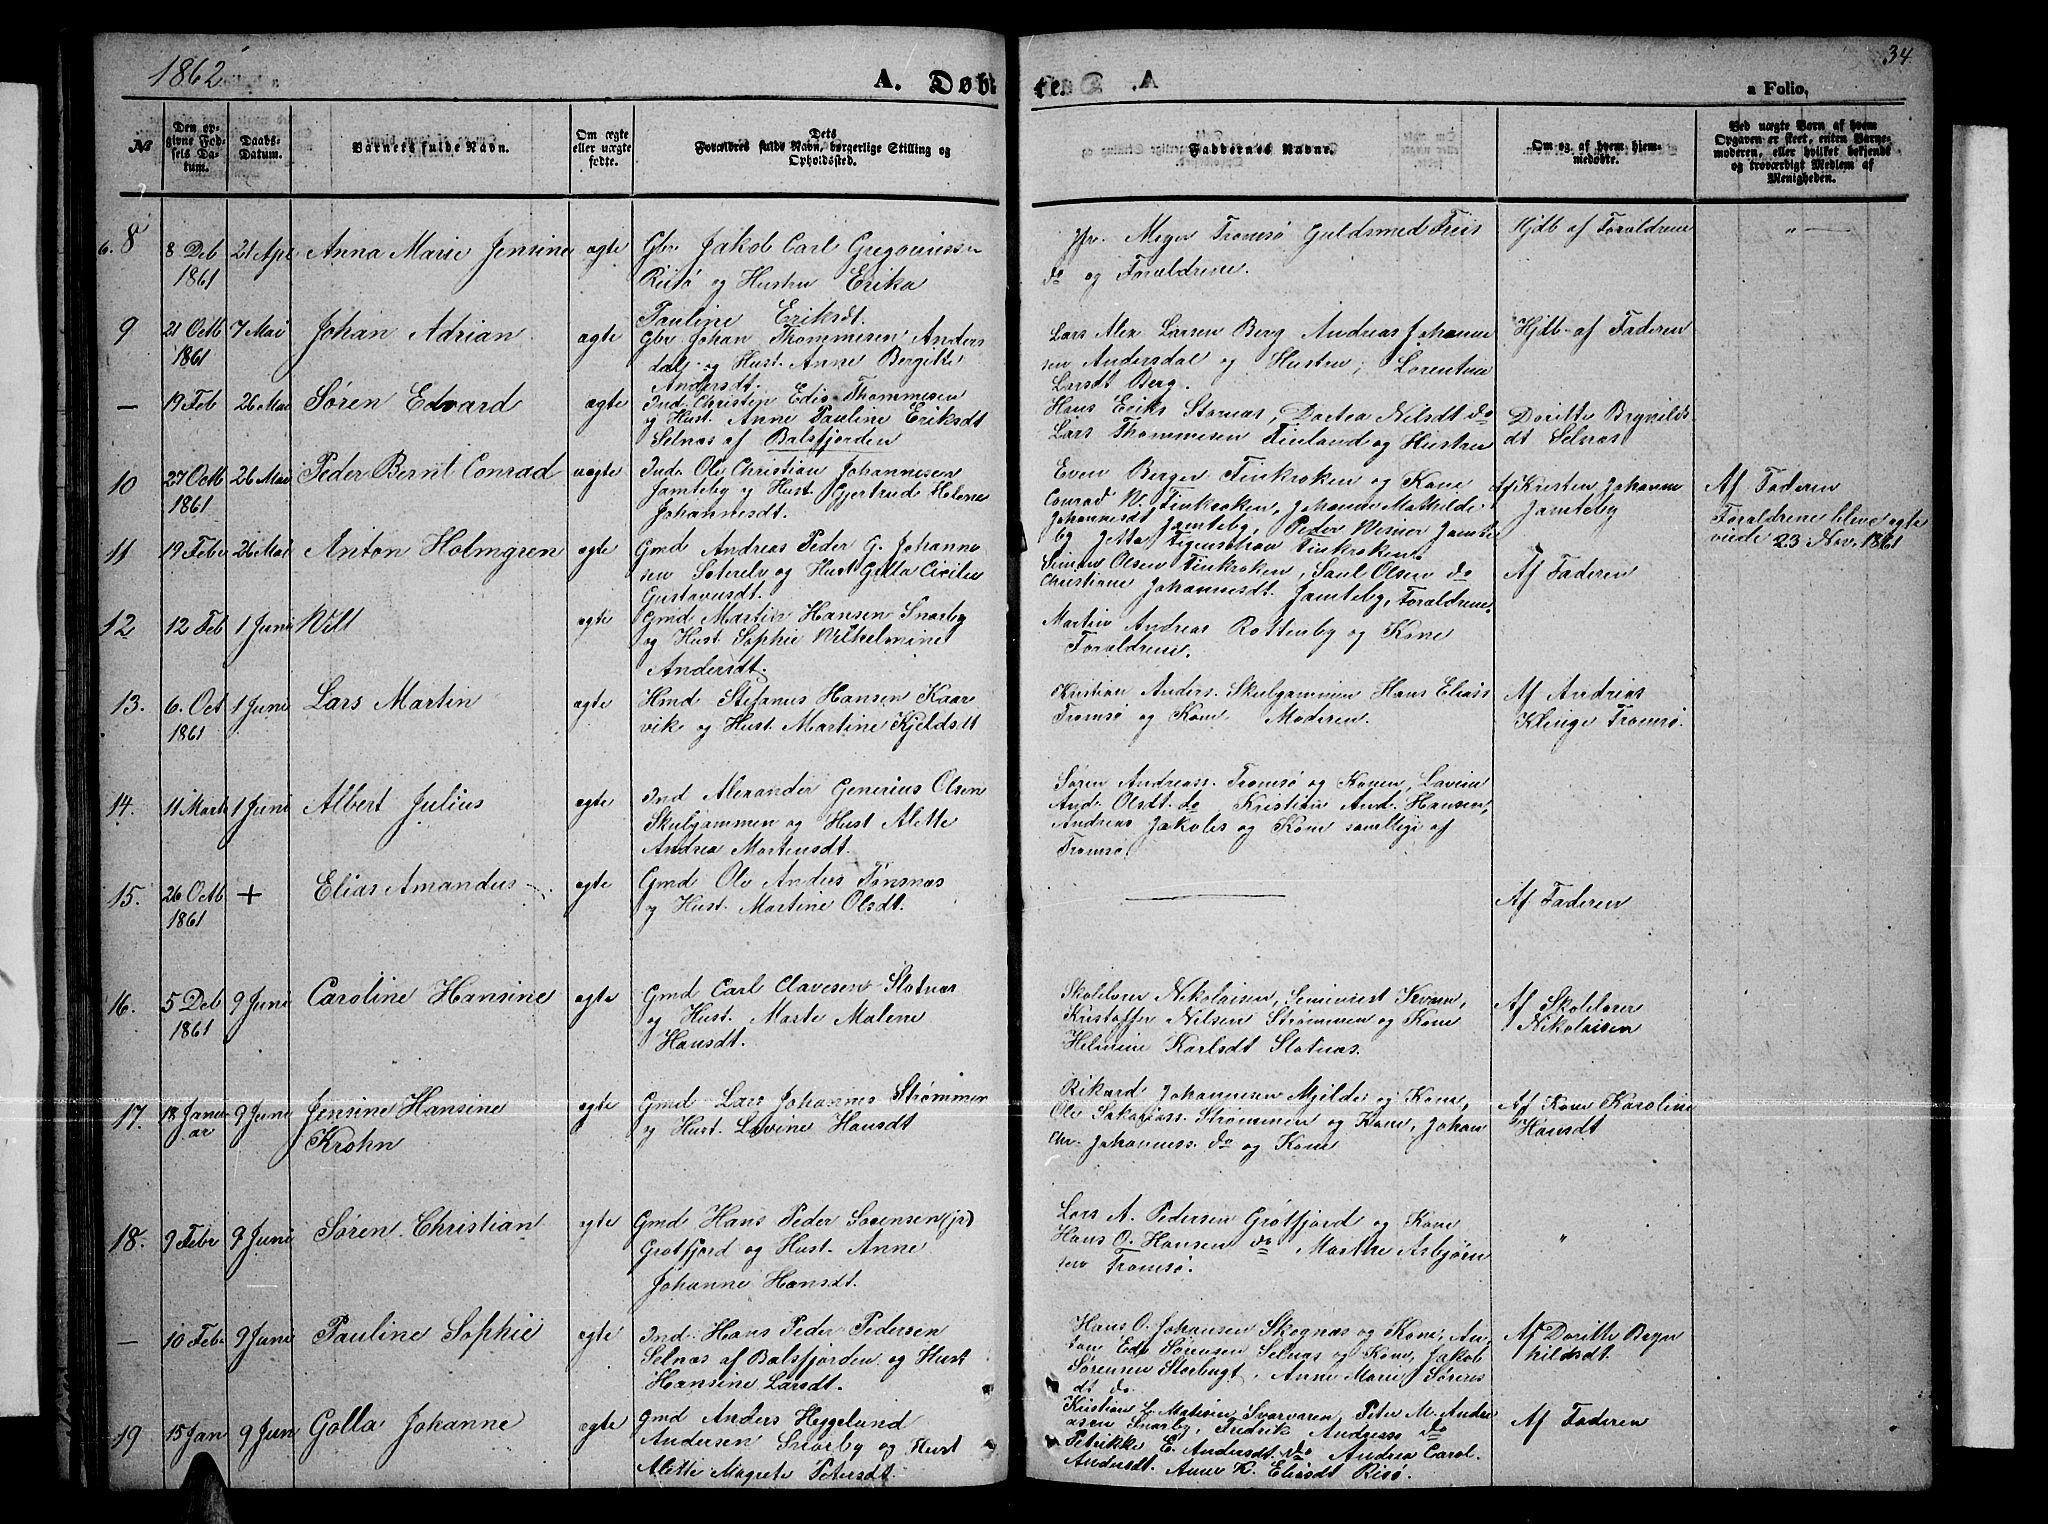 1862
A. Døbte.
34
a Folio,
№
Den opgivne Fødsels Datum.
Daabs-Datum.
Barnets fulde Navn.
Om ægte eller uægte fødte.
Dets Forældres fulde Navn, borgerlige Stilling og Opholdssted.
Faddernes Navne.
Om og af hvem hjemmedøbte.
Ved uægte Børn af hvem Opgaven er skeet, enten Barnemoderen, eller hvilket bekjendt og troværdigt Medlem af Menigheden.
6. 8
8 Deb 1861
21 Apr
Anna Marie Jensine
ægte
Gbr Jakob Carl Gregoriussen
Risø og Hustru Erika
Pauline Eriksdt.
Jfr. Meyer Tromsø Guldsmed Friis
do og Forældrene.
Hjdb af Forældrene
9
21 Octb 1861
7 Mai
Johan Adrian
ægte
Gbr Johan Thommesen Anders
dal og Hust. Anne Bergitte
Andersdt.
Lars Alex Larsen Berg Andreas Johanne
sen Andersdal og Hustru, Lorentine
Larsdt Berg.
Hjdb af Faderen
—
19 Feb
26 Mai
Søren Edvard
ægte
Ind Christen Edis Thommesen
og Hust. Anne Pauline Eriksdt
Selnæs af Balsfjorden
Hans Eriks Stornæs, Dortea Nilsdt do
Lars Thommesen Finland og Hustru
Doritte Brynilds
dt Selnæs
10
27 Octb 1861
26 Mai
Peder Bernt Conrad
uægte
Ind. Ole Christian Johannesen
Jamteby og Hust. Gjertrud Helene
Johannesdt.
Even Berger Finkroken og Kone
Conrad W. Finkroken, Johanne Mathilde
Johannesdt Jamteby, Peder Wisner Jamte
by Jetta Figenschau Finkroken.
Af Kristen Johannes
Jamteby
Af Faderen
Forældrene bleve ægte
viede 23 Nov. 1861
11
19 Febr
26 Mai
Anton Holmgren
ægte
Gmd Andreas Peder G. Johanne
sen Sæterelv og Hust Gitta Cicilie
Gustavusdt.
Simon Olsen Finkroken, Saul Olsen do
Christiane Johannesdt. Jamteby, Forældrene.
Af Faderen
12
12 Feb
1 Juni
Nill
ægte
Gmd Martin Hansen Snarby
og Hust Sophie Wilhelmine
Andersdt.
Martin Andreas Rottenby og Kone
Forældrene.
13.
6. Oct 1861
1 Juni
Lars Martin
ægte
Hmd Stefanus Hansen Kaar
vik og Hust. Martine Kjeldsdt
Kristian Anders. Skulgammen Hans Elias
Tromsø og Kone. Moderen.
Af Andreas
Klinge Tromsø.
14.
11 Marts
1 Juni
Albert Julius
ægte
Ind Alexander Generius Olsen
Skulgammen og Hust Alette
Andrea Martensdt.
Søren Andreass. Tromsø og Kone, Lavine
And. Olsdt. do Kristian And. Hansen,
Andreas Jakobs og Kone samtlige af
Tromsø.
15.
26 Octb 1861
+
Elias Amandus
ægte
Gmd Ole Anders Tønsnæs
og Hust. Martine Olsdt.
Af Faderen
16.
5 Deb 1861
9 Juni
Caroline Hansine
ægte
Gmd Carl Clavesen Slotnæs
og Hust. Marte Malene
Hansdt.
Skolelærer Nikolaisen, Seminarist Kroon,
Kristoffer Nilsen Strømmen og Kone
Helmine Karlsdt Slotnæs.
Af Skolelærer
Nikolaisen
17.
18 Januar
9 Juni
Jensine Hansine
Krohn
ægte
Gmd Lars Johannes Strømmen
og Hust. Lavine Hansdt
Rikard Johannesen Mjelde og Kone,
Ole Sakariass. Strømmen og Kone, Johan
Chr. Johanness. do og Kone
Af Kone Karoline
Hansdt
18.
9 Febr
9 Juni
Søren Christian
ægte
Gmd Hans Peder Sørensen (jr)
Grøtfjord og Hust. Anne
Johanne Hansdt.
Lars A. Pedersen Grøtfjord og Kone
Hans O. Hansen do Marthe Asbjørn
sen Tromsø.
"
—
10 Feb.
9 Juni
Pauline Sophie
ægte
Ind. Hans Peder Pedersen
Selnæs af Balsfjorden og Hust
Hansine Larsdt.
Hans O. Johansen Skognæs og Kone, An
ton Edv Sørensen Selnæs og Kone, Jakob
Sørensen Storbugt, Anne Marie Sørens
dt do
Af Doritte Bryn
hildsdt.
19
15 Jan
9 Jun
Golla Johanne
ægte
Gmd Anders Heggelund
Andersen Snarby og Hust
Alette Magrete Petersdt.
Kristian L. Mathisen Svarvaren, Peter M. Andre
asen Snarby, Fredrik Andreass do
Petrikke E. Andersdt do Andrea Carol.
Andersdt. Anne K. Eliasdt Risø.
Af Faderen